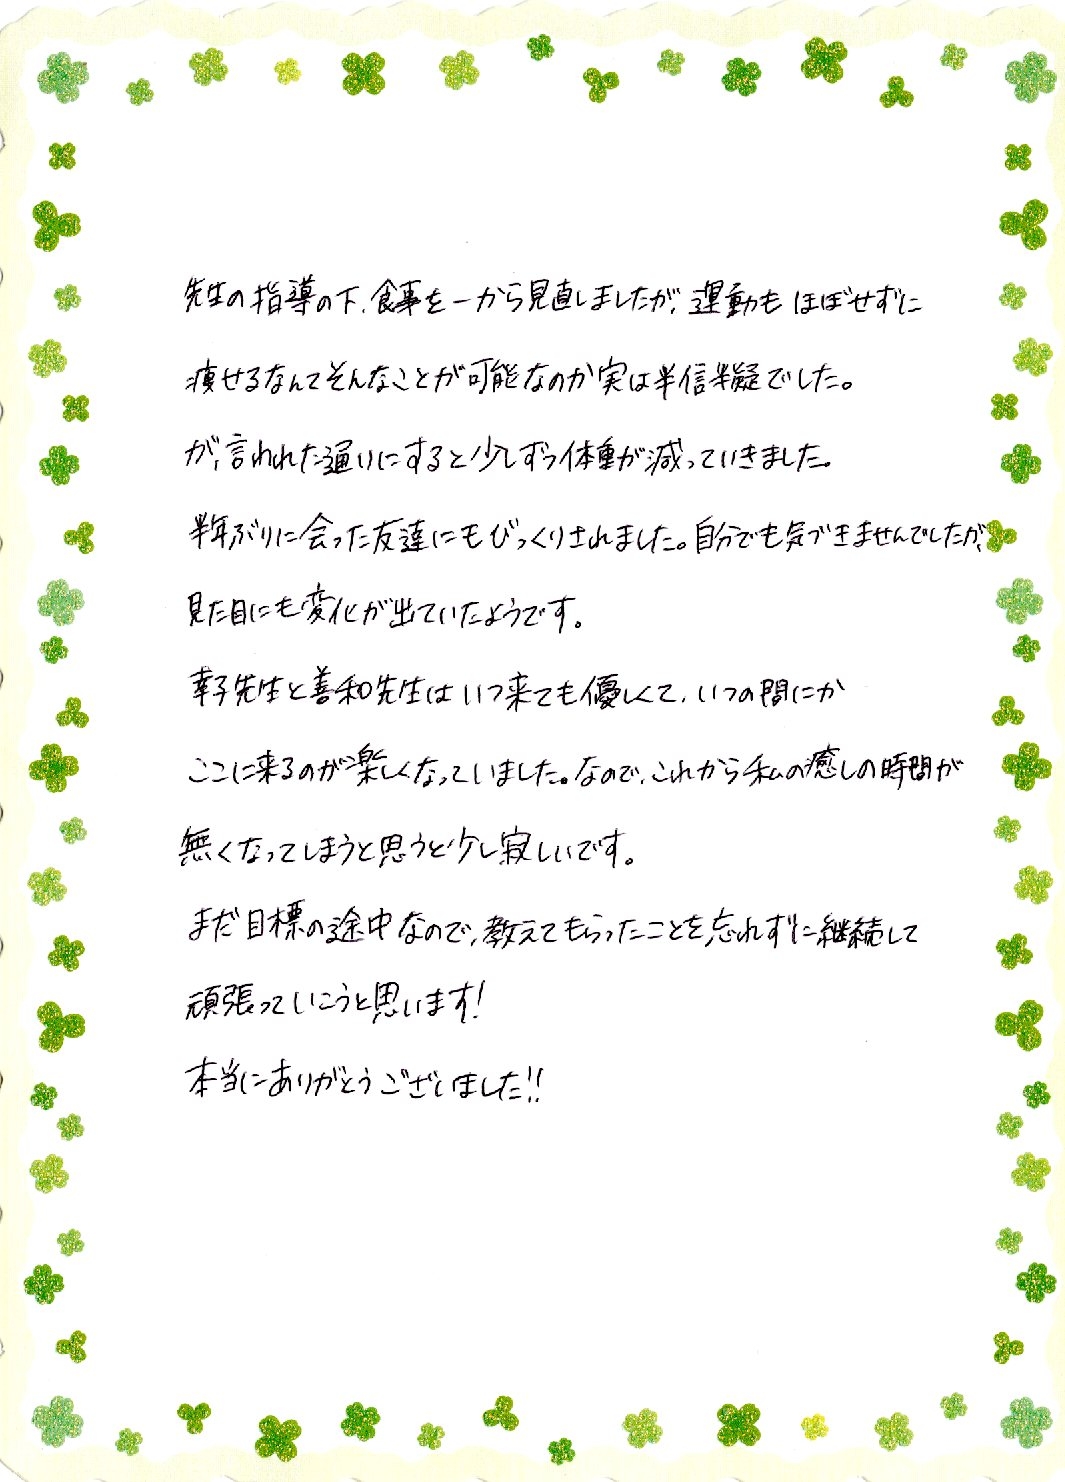 先生の指導の下、食事を一から見直しましたが、運動もほぼせずに
痩せるなんてそんなことが可能なのか実は半信半疑でした。
が、言われた通りにすると少しずつ体重が減っていきました。
半年ぶりに会った友達にもびっくりされました。自分でも気づきませんでしたが、
見た目にも変化が出ていたようです。
幸子先生と善和先生はいつ来ても優しくて、いつの間にか
ここに来るのが楽しくなっていました。なので、これから私の癒しの時間が
無くなってしまうと思うと少し寂しいです。
まだ目標の途中なので、教えてもらったことを忘れずに継続して
頑張っていこうと思います!
本当にありがとうございました!!